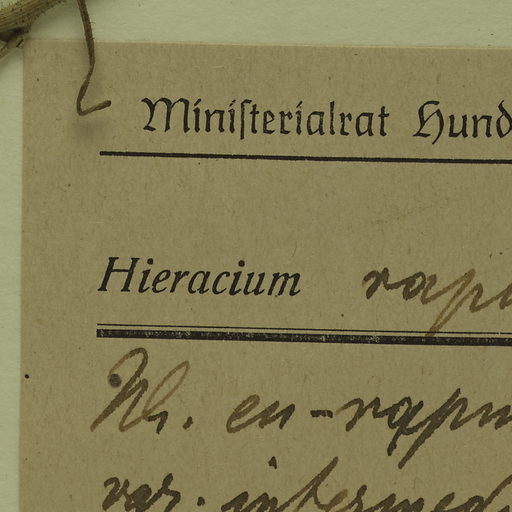 Ministerialrat Hund
Hieracium rapu
Ul. eu-rapu
var. intermed